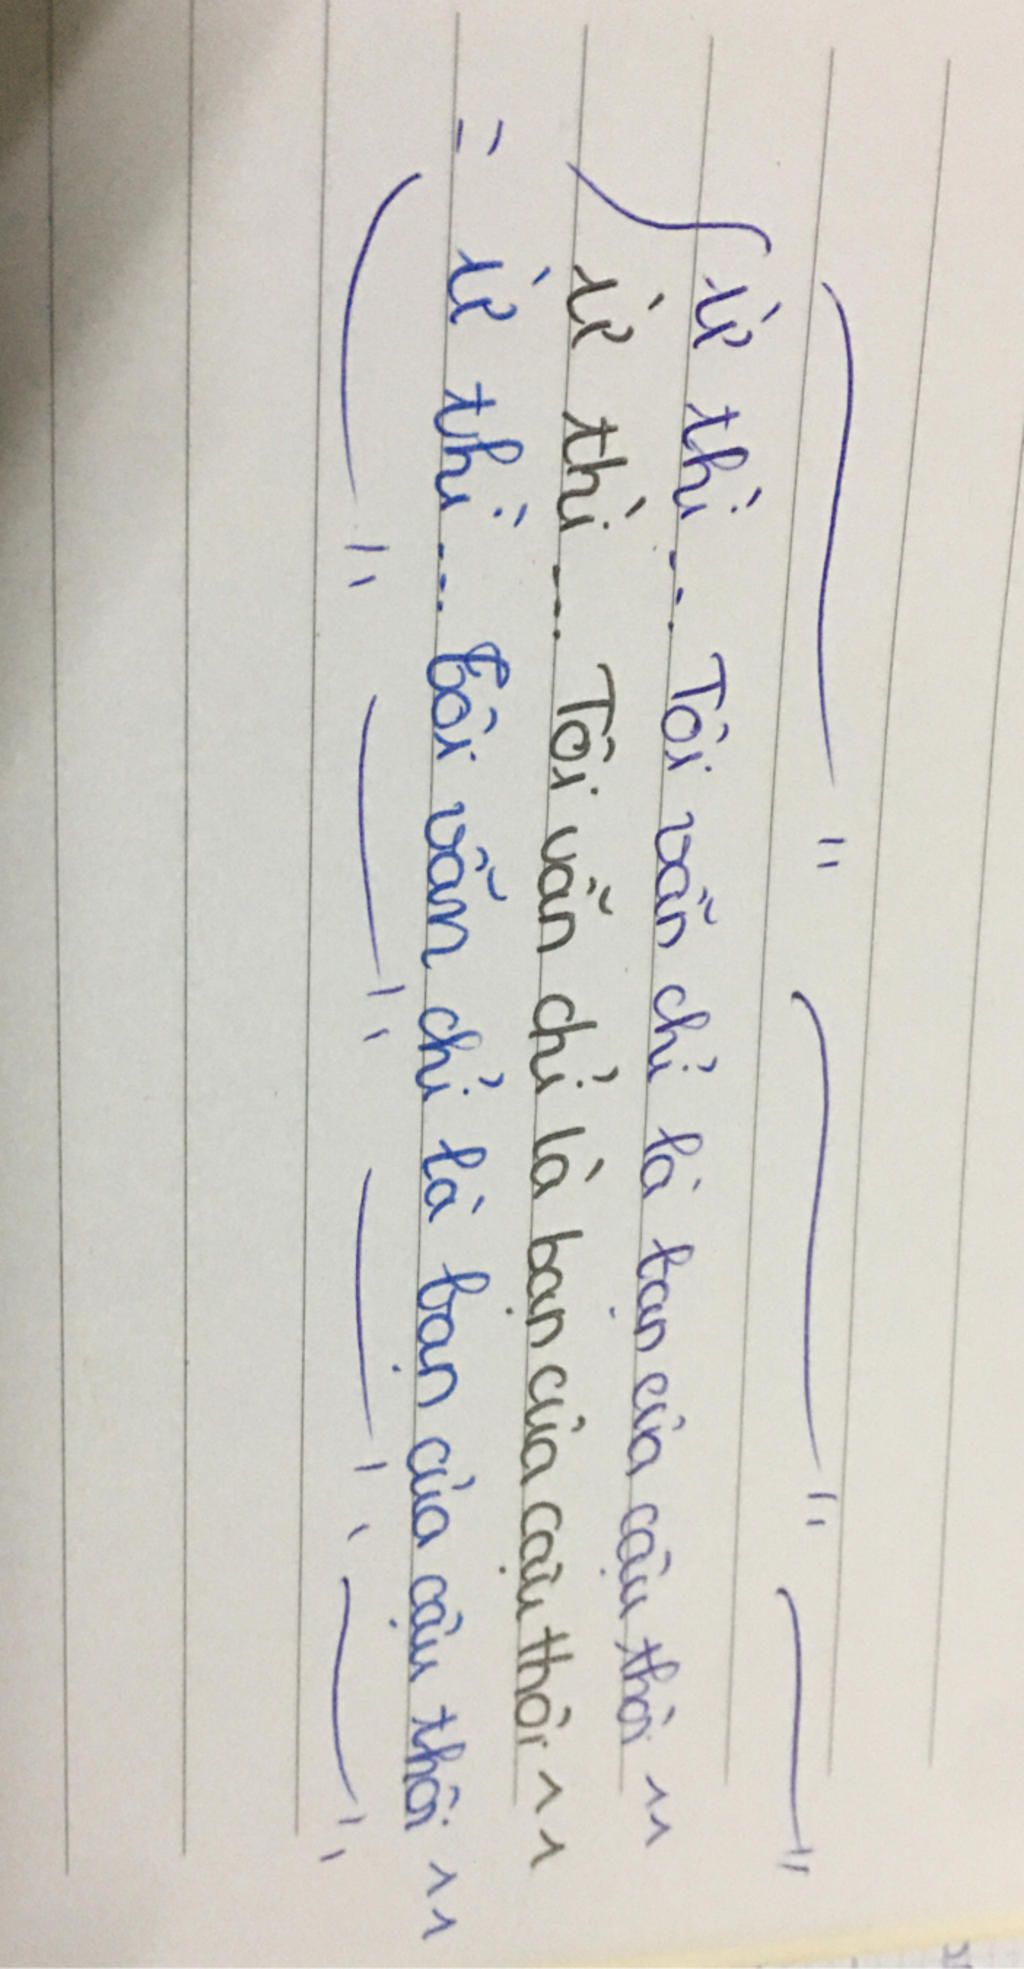 Ừ thì... Tôi vẫn chỉ là bạn của cậu thôi ^^
Ừ thì... Tôi vẫn chỉ là bạn của cậu thôi ^^
Ừ thì... Tôi vẫn chỉ là bạn của cậu thôi ^^